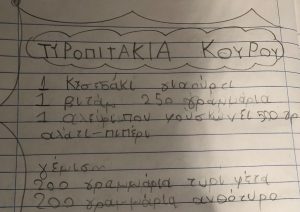 ΤΥΡΟΠΙΤΑΚΙΑ ΚΟΥΡΟΥ
1 Κεσεδάκι γιαούρτι
1 βιτάμ 250 γραμμάρια
1 αλεύρι που φουσκώνει 500 γρ
αλάτι-πιπέρι
γέμιση
200 γραμμάρια τυρί φέτα
200 γραμμάρια ανθότυρο